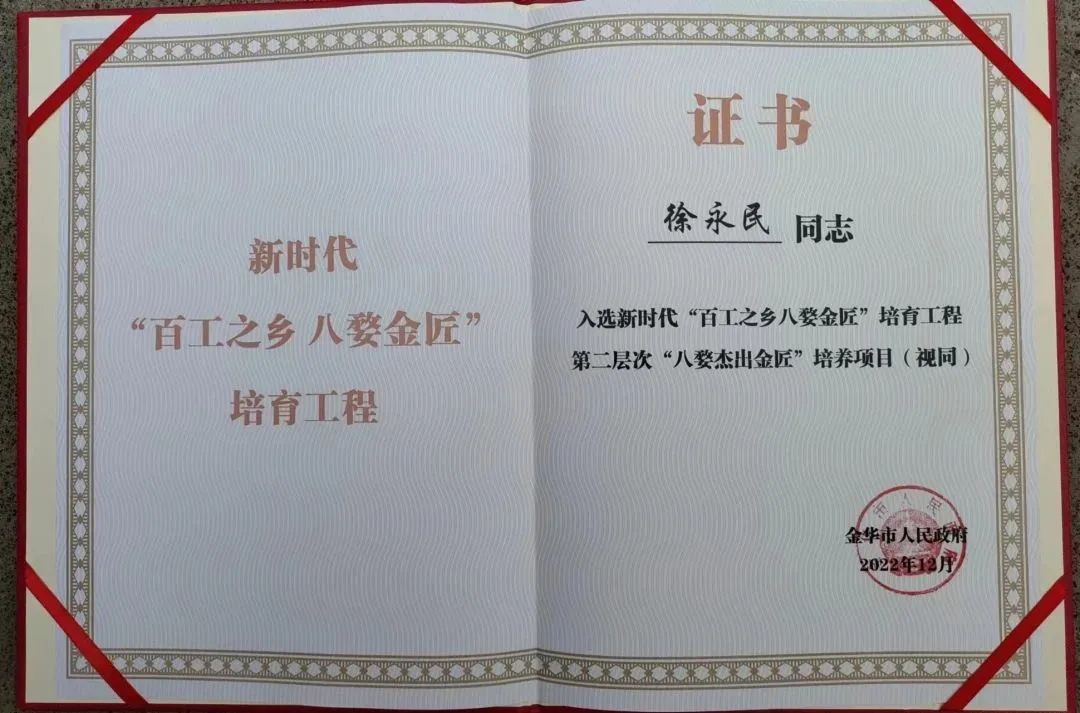 新时代
“百工之乡 八婺金匠”
培育工程
证书
徐永民 同志
入选新时代“百工之乡八婺金匠”培育工程
第二层次“八婺杰出金匠”培养项目（视同）
市人民
金华市人民政府
2022年12月